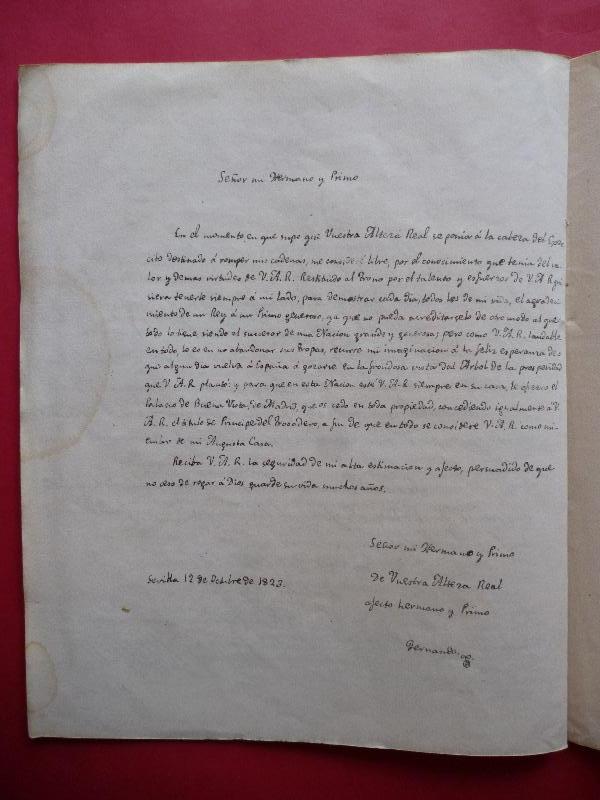 Señor mi Hermano y Primo
En el momento en que supo que Vuestra Alteza Real se ponia á la cabeza del Exer-
cito destinado á romper mis cadenas, me consideré libre, por el conocimiento que tenia del va-
lor y demas virtudes de V. A. R. Restituido al Trono por el talento y esfuerzos de V. A. R. qui
siera tenerle siempre á mi lado, para demostrar cada dia, todos los de mi vida, el agradeci-
miento de un Rey á un Primo generoso, ya que no pueda acreditárselo de otro modo al que
todo lo tiene siendo el sucesor de una Nacion grande y generosa; pero como V. A. R. laudable
en todo, lo es en no abandonar sus tropas, recurre mi imaginacion á la feliz esperanza de
que algun dia vuelva á España á gozarse en la frondosa vista del Arbol de la prosperidad
que V. A. R. plantó; y para que en esta Nacion esté V. A. R. siempre en su casa, le ofrezco el
Palacio de Buena Vista, de Madrid, que os cedo en toda propiedad, concediendo igualmente á V.
A. R. el titulo de Principe del Trocadero, a fin de que en todo se considere V. A. R. como mi-
embro de mi Augusta Casa.
Reciba V. A. R. la seguridad de mi alta estimacion y afecto, persuadido de que
no ceso de rogar á Dios guarde su vida muchos años.
Señor mi Hermano y Primo
Sevilla 12 de Octubre de 1823.
De Vuestra Alteza Real
afecto hermano y Primo
Fernando.